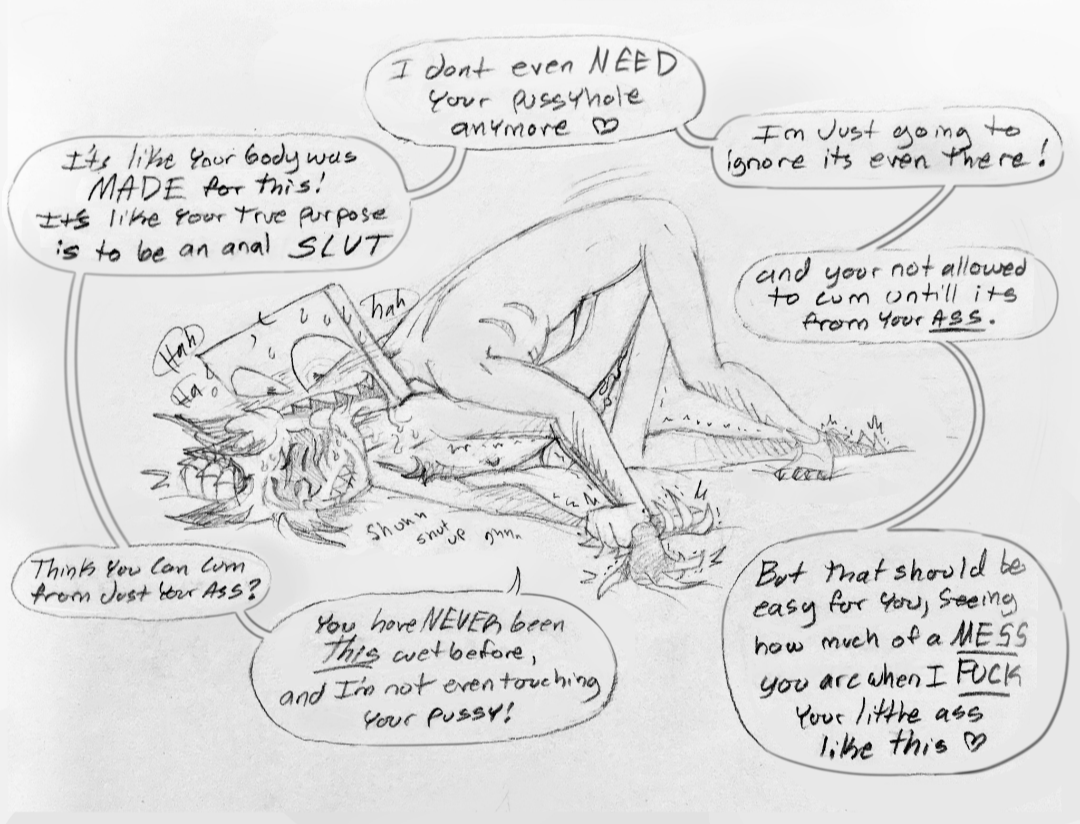 You have NEVER been
This wet before,
and I'm not even touching
your pussy!
Think you can cum
from Just your Ass?
It's like your body was
MADE for this!
It's like your true purpose
is to be an anal SLUT
I dont even NEED
your pussyhole
anymore ♡
Im Just going to
ignore its even there!
and your not allowed
to cum untill its
from your ASS.
But that should be
easy for you, Seeing
how much of a MESS
you are when I FUCK
your little ass
like this ♡
Hah
hah
Ha
shut up